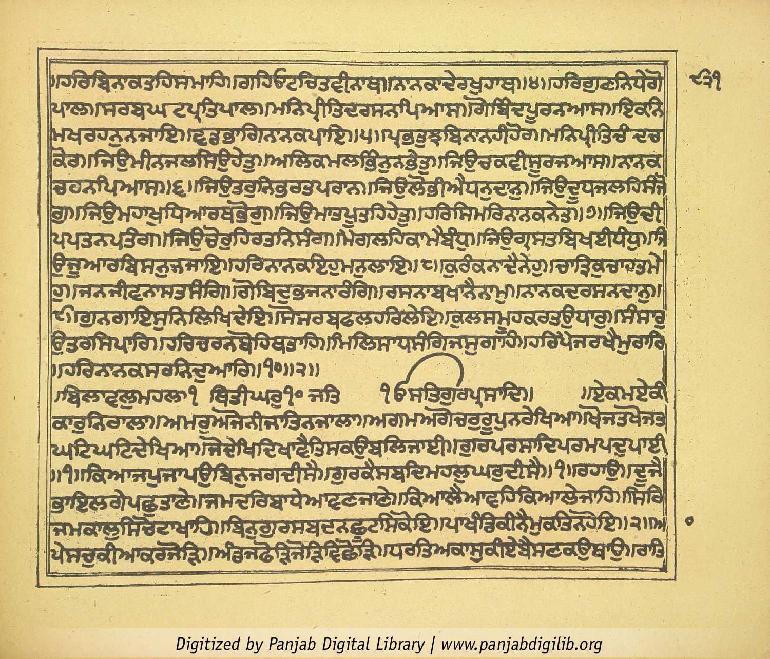 ॥ਹਰਿਬਿਨਾਕਤਹਿਸਮਾਹਿ॥ਗਹਿਓਟਚਿਤਵੀਨਾਥ॥ਨਾਨਕਾਦੇਰਖੁਹਾਥ॥੪॥ਹਰਿਗੁਣਨਿਧੇਗੋ
ਪਾਲ॥ਸਰਬਘਟਪ੍ਰਤਿਪਾਲ॥ਮਨਿਪ੍ਰੀਤਿਦਰਸਨਪਿਆਸ॥ਗੋਬਿੰਦਪੂਰਨਆਸ॥ਇਕਨਿ
ਮਖਰਹਨੁਨਜਾਇ॥ਵਡਭਾਗਿਨਾਨਕਪਾਇ॥੫॥ਪ੍ਰਭਤੁਝਬਿਨਾਨਹੀਹੋਰ॥ਮਨਿਪ੍ਰੀਤਿਚੰਦਚ
ਕੋਰ॥ਜਿਉਮੀਨਜਲਸਿਉਹੇਤੁ॥ਅਲਿਕਮਲਭਿੰਨੁਨਭੇਤੁ॥ਜਿਉਚਕਵੀਸੂਰਜਆਸ॥ਨਾਨਕ
ਚਰਨਪਿਆਸ॥੬॥ਜਿਉਤਰੁਨਿਭਰਤਪਰਾਨ॥ਜਿਉਲੋਭੀਐਧਨੁਦਾਨੁ॥ਜਿਉਦੂਧਜਲਹਿਸੰਜੋ
ਗੁ॥ਜਿਉਮਹਾਖੁਧਿਆਰਥਭੋਗੁ॥ਜਿਉਮਾਤਪੂਤਹਿਹੇਤੁ॥ਹਰਿਸਿਮਰਿਨਾਨਕਨੇਤ॥੭॥ਜਿਉਦੀ
ਪਪਤਨਪਤੰਗ॥ਜਿਉਚੋਰੁਹਿਰਤਨਿਸੰਗ॥ਮੈਗਲਹਿਕਾਮੈਬੰਧੁ॥ਜਿਉਗ੍ਰਸਤਬਿਖਈਧੰਧੁ॥ਜਿ
ਉਜੂਆਰਬਿਸਨੁਨਜਾਇ॥ਹਰਿਨਾਨਕਇਹੁਮਨੁਲਾਇ॥੮॥ਕੁਰੰਕਨਾਦੈਨੇਹੁ॥ਚਾਤ੍ਰਿਕੁਚਾਹਤਮੇ
ਹੁ॥ਜਨਜੀਵਨਾਸਤਸੰਗਿ॥ਗੋਬਿਦੁਭਜਨਾਰੰਗਿ॥ਰਸਨਾਬਖਾਨੈਨਾਮੁ॥ਨਾਨਕਦਰਸਨਦਾਨੁ॥
੯॥ਗੁਨਗਾਇਸੁਨਿਲਿਖਿਦੇਇ॥ਸੋਸਰਬਫਲਹਰਿਲੇਇ॥ਕੁਲਸਮੂਹਕਰਤਉਧਾਰੁ॥ਸੰਸਾਰੁ
ਉਤਰਸਿਪਾਰਿ॥ਹਰਿਚਰਨਬੋਹਿਥਤਾਹਿ॥ਮਿਲਿਸਾਧਸੰਗਿਜਸੁਗਾਹਿ॥ਹਰਿਪੈਜਰਖੈਮੁਰਾਰਿ
॥ਹਰਿਨਾਨਕਸਰਨਿਦੁਆਰਿ॥੧੦॥੨॥
॥ਬਿਲਾਵਲੁਮਹਲਾ੧ ਥਿਤੀਘਰੁ੧੦ ਜਤਿ ੴਸਤਿਗੁਰਪ੍ਰਸਾਦਿ॥ ॥ਏਕਮਏਕੰ
ਕਾਰੁਨਿਰਾਲਾ॥ਅਮਰੁਅਜੋਨੀਜਾਤਿਨਜਾਲਾ॥ਅਗਮਅਗੋਚਰੁਰੂਪੁਨਰੇਖਿਆ॥ਖੋਜਤਖੋਜਤ
ਘਟਿਘਟਿਦੇਖਿਆ॥ਜੋਦੇਖਿਦਿਖਾਵੈਤਿਸਕਉਬਲਿਜਾਈ॥ਗੁਰਪਰਸਾਦਿਪਰਮਪਦੁਪਾਈ
॥੧॥ਕਿਆਜਪੁਜਾਪਉਬਿਨੁਜਗਦੀਸੈ॥ਗੁਰਕੈਸਬਦਿਮਹਲੁਘਰੁਦੀਸੈ॥੧॥ਰਹਾਉ॥ਦੂਜੈ
ਭਾਇਲਗੇਪਛੁਤਾਣੇ॥ਜਮਦਰਿਬਾਧੇਆਵਣਜਾਣੇ॥ਕਿਆਲੈਆਵਹਿਕਿਆਲੇਜਾਹਿ॥ਸਿਰਿ
ਜਮਕਾਲੁਸਿਚੋਟਾਖਾਹਿ॥ਬਿਨੁਗੁਰਸਬਦਨਛੂਟਸਿਕੋਇ॥ਪਾਖੰਡਿਕੀਨੈਮੁਕਤਿਨਹੋਇ॥੨॥ਆ
ਪੇਸਚੁਕੀਆਕਰਜੋੜਿ॥ਅੰਡਜਫੋੜਿਜੋੜਿਵਿਛੋੜਿ॥ਧਰਤਿਅਕਾਸੁਕੀਏਬੈਸਣਕਉਥਾਉ॥ਰਾਤਿ
Digitized by Panjab Digital Library | www.panjabdigilib.org